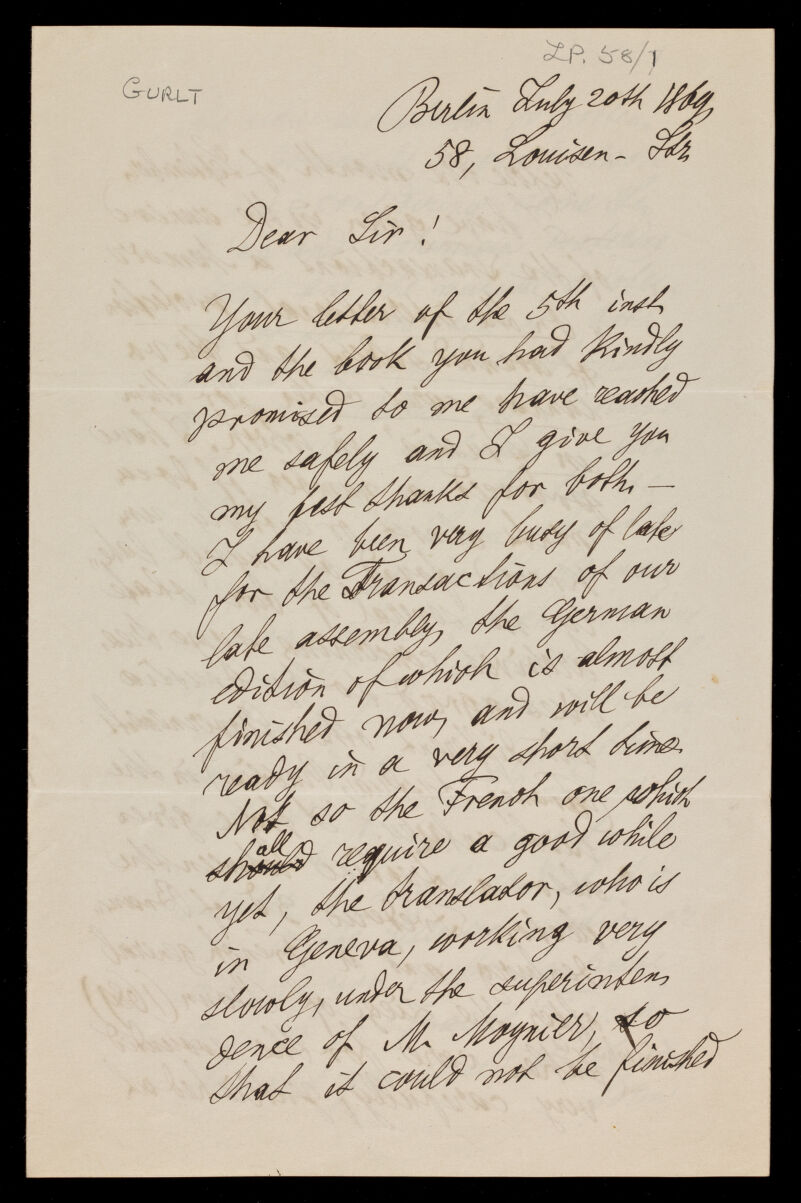 LP. 58/1
GURLT
Berlin July 20th 1869
58, Louisen-Str
Dear Sir!
Your letter of the 5th inst.
and the book you had kindly
promised to me have reached
me safely and I give you
my best thanks for both. —
I have been very busy of late
for the Transactions of our
late assembly, the German
edition of which is almost
finished now, and will be
ready in a very short time.
Not so the French one, which
shall require a good while
yet, the translator, who is
in Geneva, working very
slowly, under the superinten-
dence of M. Moynier, so
that it could not be finished